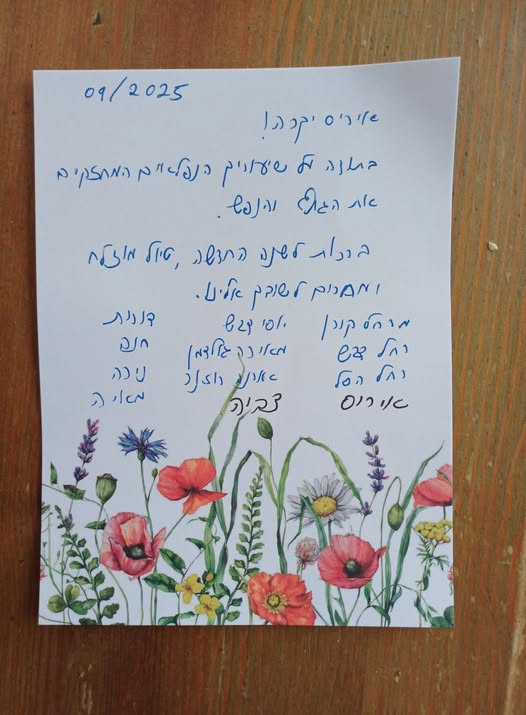 09/2025
איריס יקרה!
בתודה על שיעורייך הנפלאים המחזקים
את הגוף והנפש.
ברכות לשנה החדשה, טיול מוצלח
ומצפים לשובך אלינו.
מרחל קורן יוסי דורית
רחל מאירה גולדמן חנה
רחל הסל רוזנר נירה
איריס צביה מאיה